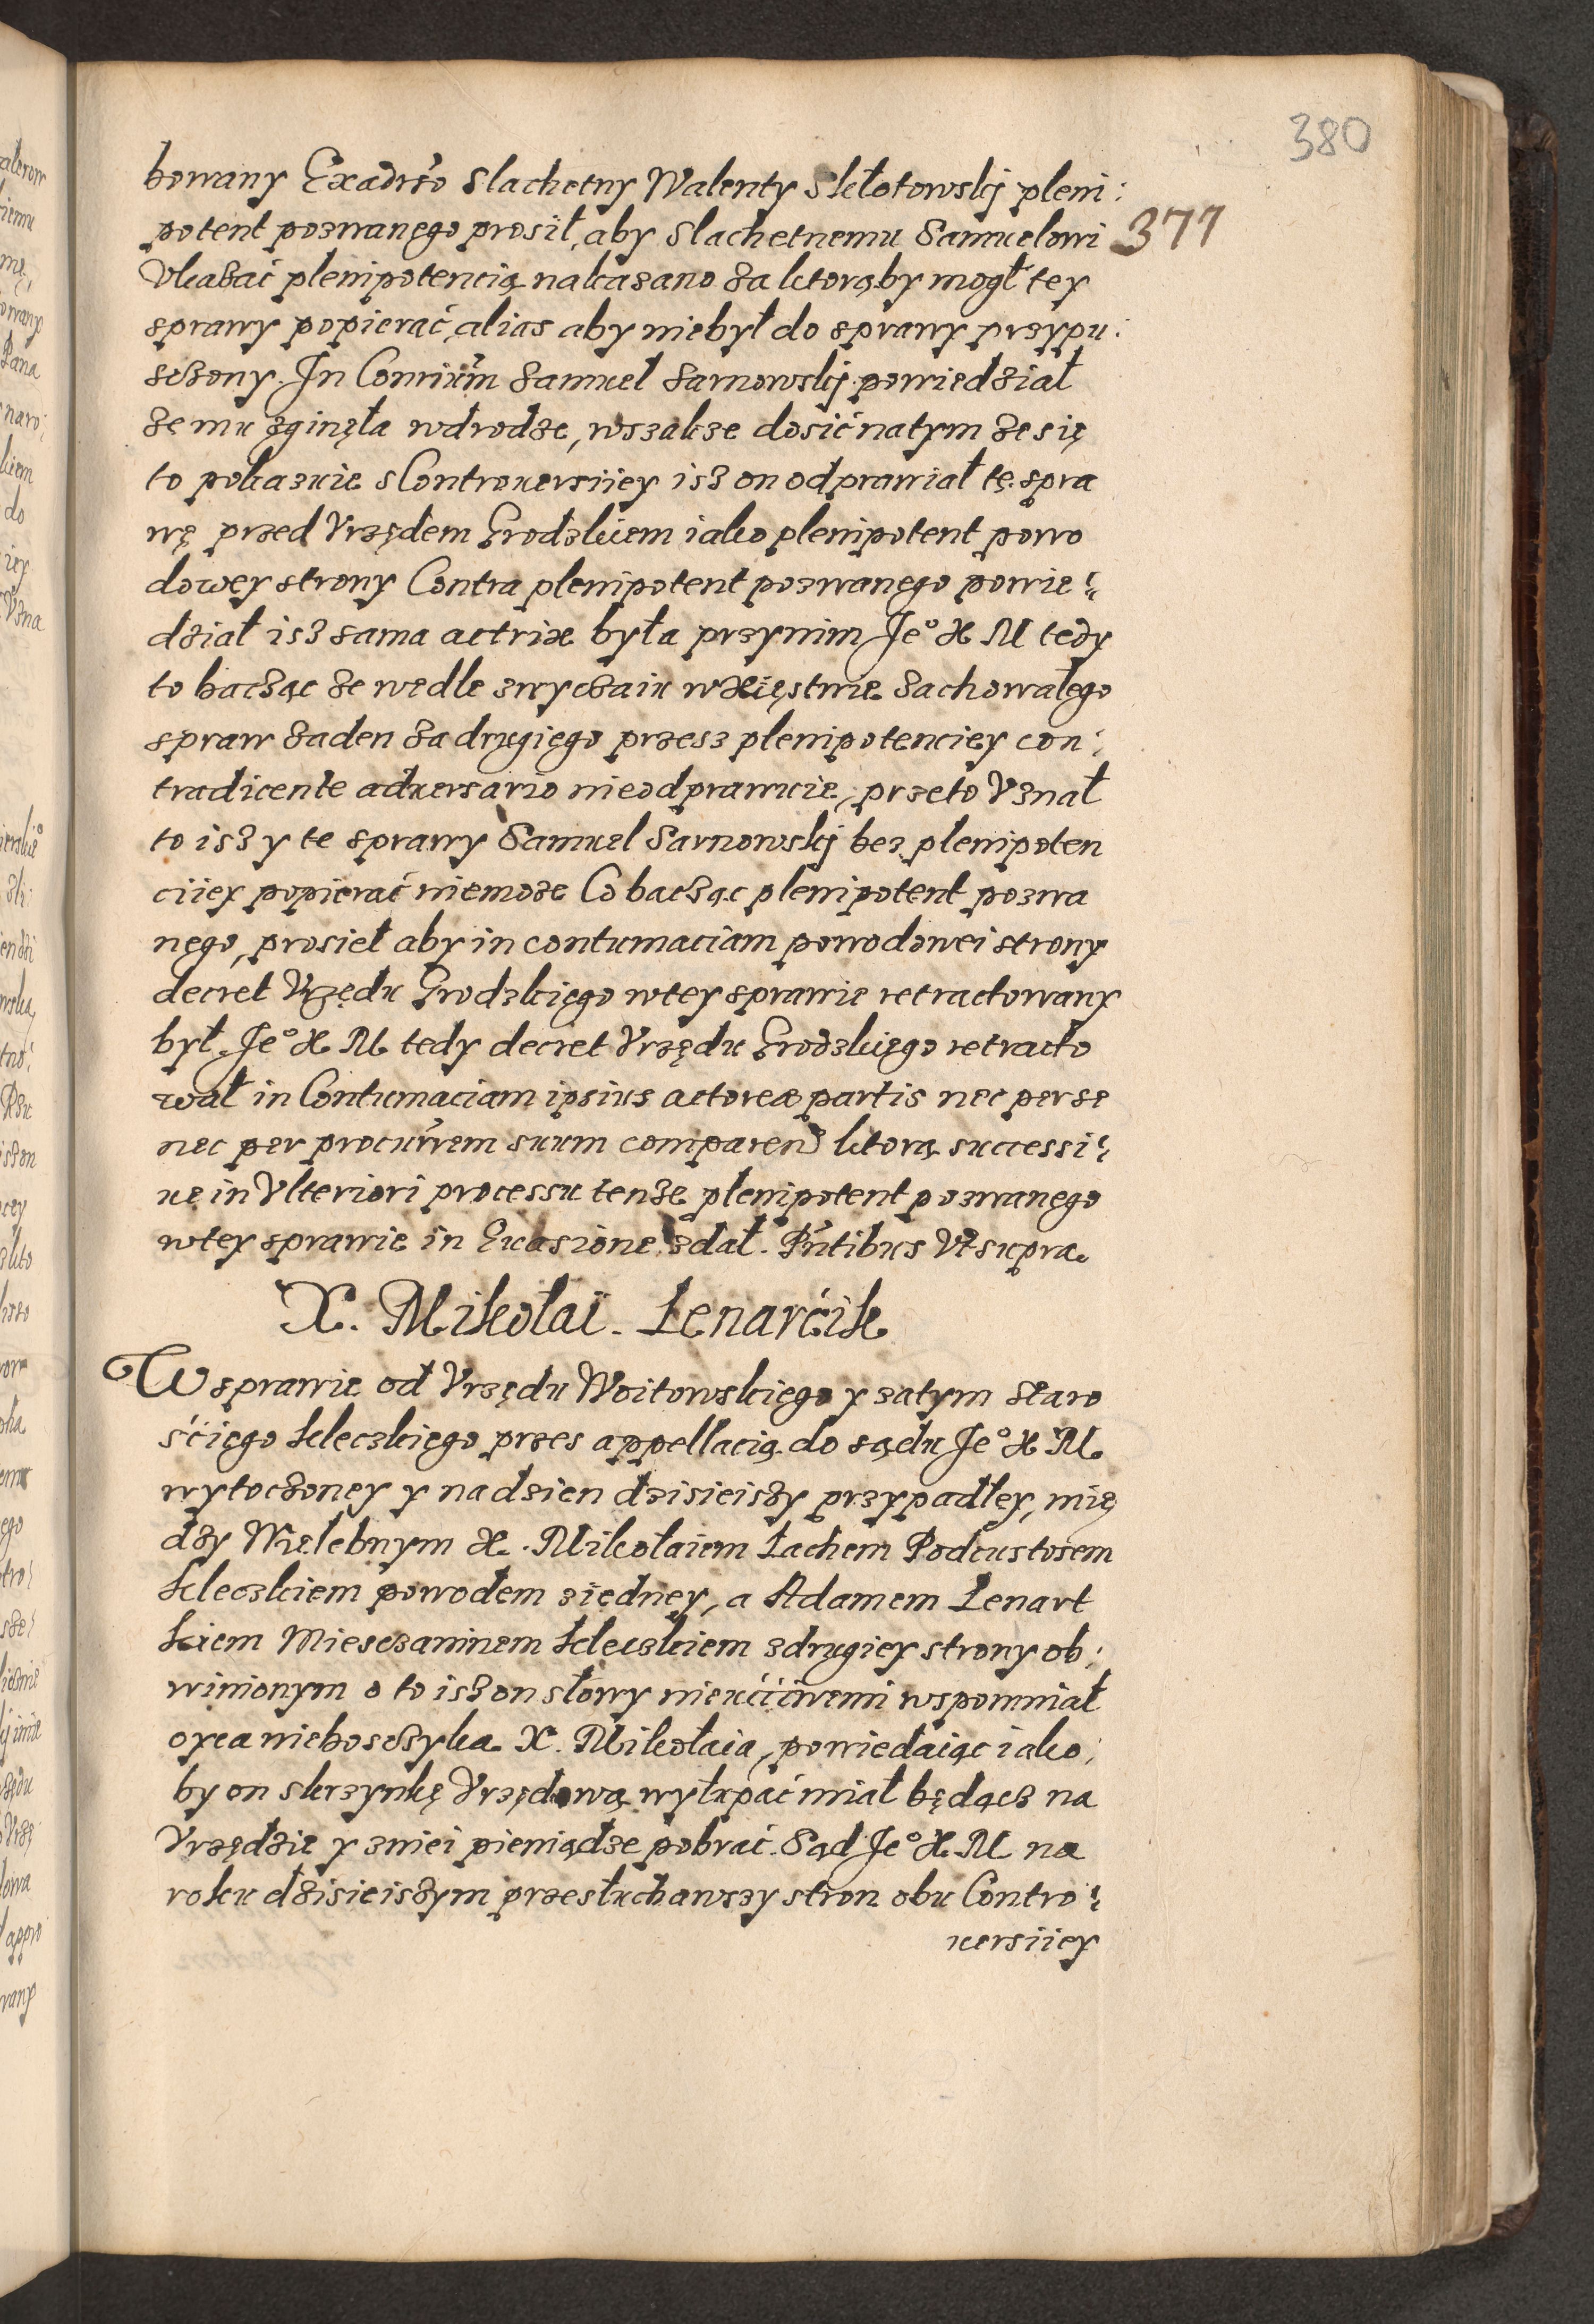 380
bowany Exadrso Slachetny Walenty Skłotowskij pleni:
potent pozwanęgo prosił, aby Slachetnemu Samuelowi
377
Vkazać plenipotencią nakazano za ktorąby mogł tey
sprawy popierać, alias aby niebył do sprawy przypu:
sczony. In Contriũm Samuel Sarnowskij powiedział
że mu zginęła wdrodze, wszakże dosić natym że się
to pokazuie sControuersiiey isz on odprawiał tę spra
wę przed Vrzędem Grodzkiem iako plenipotent powo
dowey strony Contra plenipotent pozwanęgo powie:
dział isz sama actrix była przynim Jeº X M tedy
to baczący że wedle zwyczaiu wXięstwie zachowałęgo
spraw żaden za drugięgo przesz plenipotenciey con:
tradicente aduersario nieodprawuie, przeto Vznał
to isz y te sprawy Samuel Sarnowskij bez plenipoten
ciiey popierać niemoże Co bacząc plenipotent pozwa
nęgo, prosieł aby in contumaciam powodowei strony
decret Vrzędu Grodzkięgo wtey sprawie retractowany
był. Jeº X M tedy decret Vrzędu Grodzkięgo retracto
wał in Contumaciam ipsius actoreæ partis nec per se
nec per procurrem suum comparen ktorą successi:
ue in Vlteriori processu tenże plenipotent pozwanęgo
wtey sprawie in Euasione zdał. Pñtibus Vt supra.
X. Mikołai. Łenarćik
W sprawie od Vrzędu Woitowskięgo y zatym staro
śćięgo kleczkięgo przes appellacią do sądu Jeº X M
wytoczonęy y na dzien dzisieiszy przypadłęy, mię
dzy Wielebnym X. Mikołaiem Łachem Podcustosem
kleczkiem powodem ziednęy, a Adamem Łenart
kiem Miesczaninem kleczkiem zdrugiey strony ob:
winionym o to isz on słowy nieućciwemi wspomniał
oyca nieboszczyka X. Mikołaia, powiedaiąc iako:
by on skrzynkę Vrzędową wyłupać miał będącz na
Vrzędzie y zniei pieniądze pobrać. Sąd Jeº X. M na
roku dzisieiszym przesłuchawszy stron obu Contro:
uersiiey